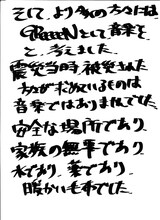 そして、より多くの方々には
GReeeeNとして音楽を
と、考えました。
震災当時、被災された
方々が求めているのは
音楽ではありませんでした。
安全な場所であり、
家族の無事であり
水であり、薬であり、
暖かい毛布でした。